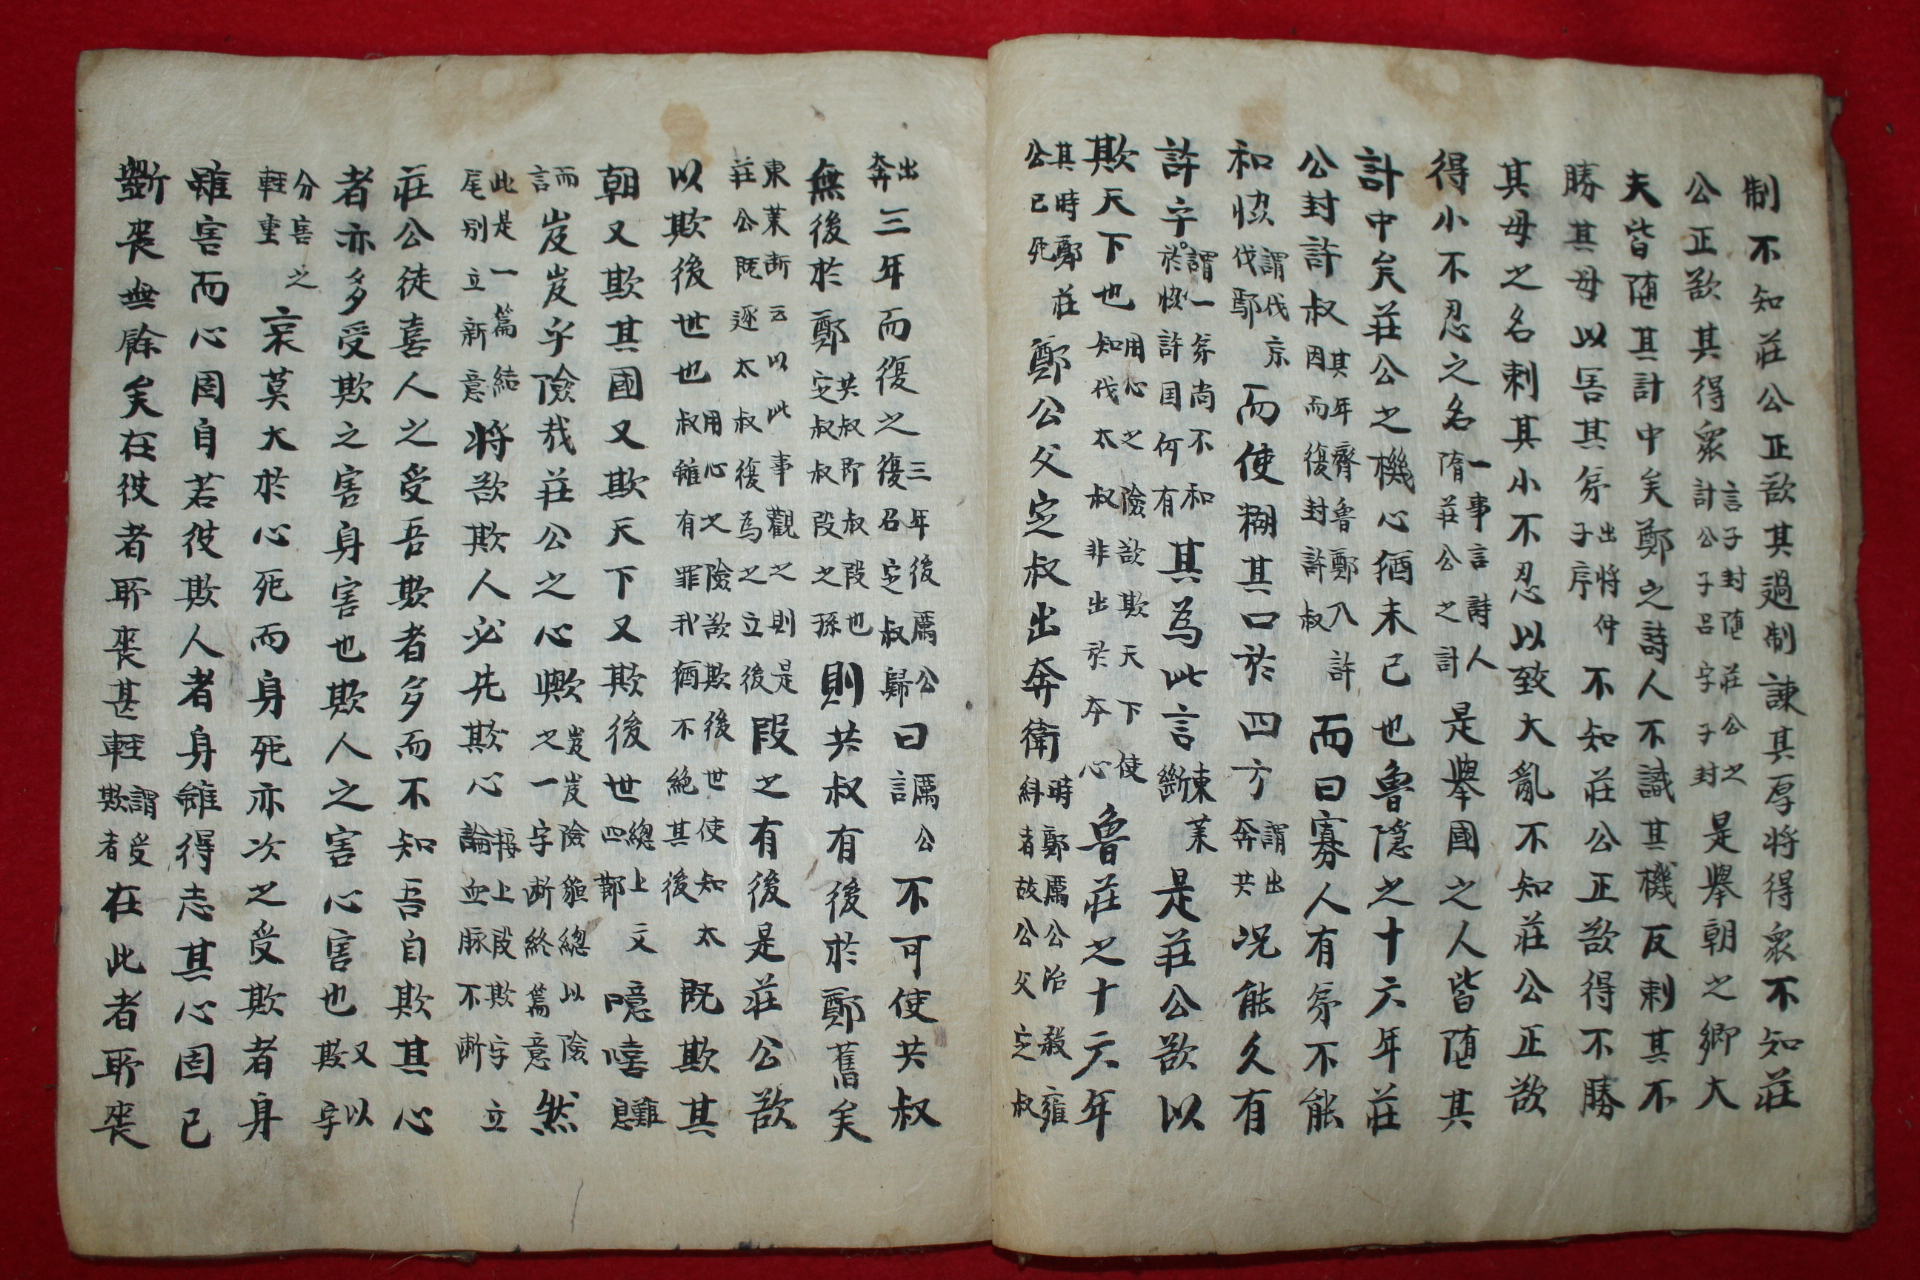 制不知莊公正欲其過制諫其厚將得衆不知莊
公正欲其得衆言子封随莊公之計公子呂字子封是擧朝之卿大
夫皆随其計中矣鄭之詩人不識其機反刺其不
勝其母以害其弟出將仲子序不知莊公正欲得不勝
其母之名刺其小不忍以致大亂不知莊公正欲
得小不忍之名一事言詩人隋莊公之計是擧國之人皆随其
計中矣莊公之機心猶未已也魯隱之十六年莊
公封許叔其年齊魯鄭入許因而復封許叔而曰寡人有弟不能
和恊謂伐京伐鄢而使糊其口於四方謂出奔共况能久有
許乎謂一弟尚不和於恊許国何有其為此言斷東莱是莊公欲以
欺天下也用心之險欲欺天下使知伐太叔非出於夲心魯莊之十六年
其時鄭莊公已死鄭公父㝎叔出奔衛時鄭厲公治敎雍糾者故公父㝎叔
出奔三年而復之三年後厲公復召㝎叔歸曰謂厲公不可使共叔
無後於鄭共叔即叔段也㝎叔叔段之孫則共叔有後於鄭舊矣
東莱断云以此事觀之則是莊公旣逐太叔復為之立後段之有後是莊公欲
以欺後世也用心之險欲欺後世使知太叔雖有罪我猶不絶其後旣欺其
朝又欺其國又欺天下又欺後世總上文四節噫嘻難息
而言岌岌乎險哉莊公之心歟岌岌險貌總以險之一字断終篇意然
此是一篇結尾別立新意將欲欺人必先欺心接上段欺字立論血脉不断
莊公徒喜人之受吾欺者多而不知吾自欺其心
者亦多受欺之害身害也欺人之害心害也又以欺字
分害之輕重哀莫大於心死而身死亦次之受欺者身
雖害而心固自若彼欺人者身雖得志其心固已
斷喪無餘矣在彼者所喪甚輕謂受欺者在此者所喪